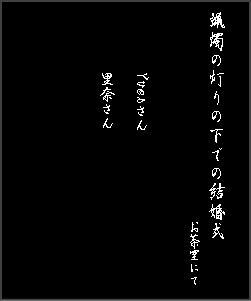 蝋燭の灯りの下での結婚式
お茶室にて
Yvesさん
里奈さん